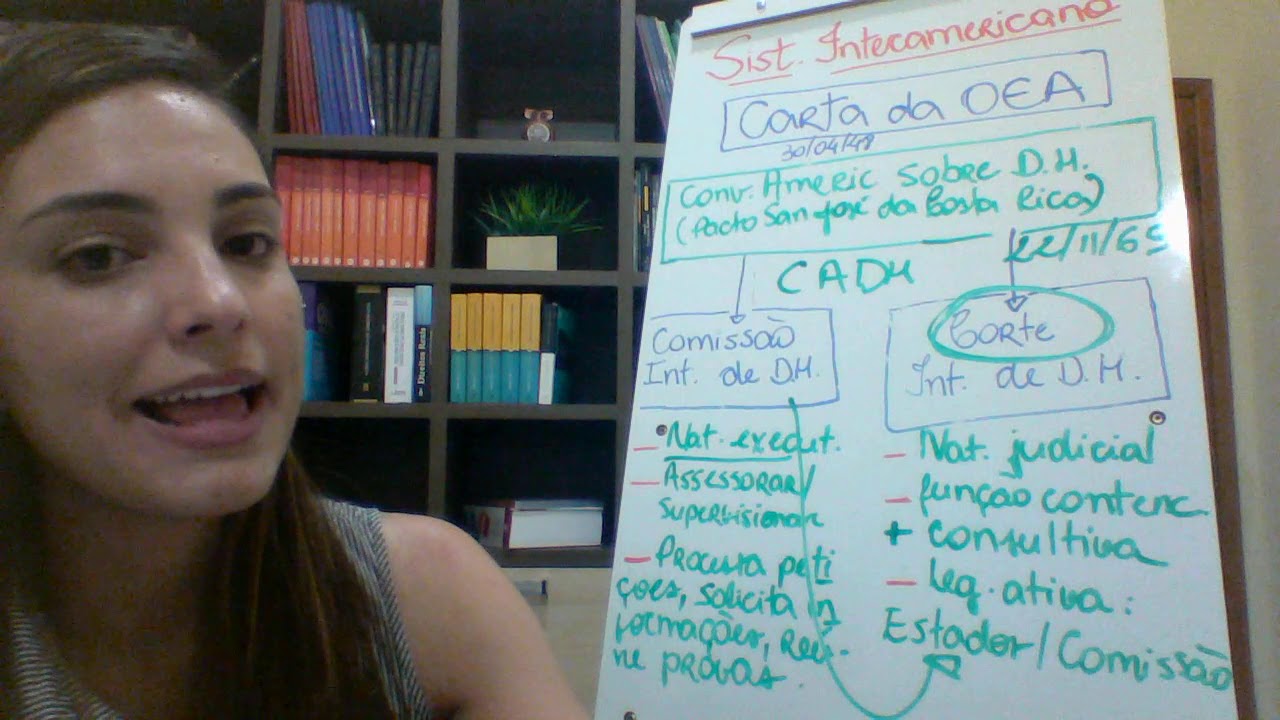 Sist. Interamericano
Carta da OEA
30/04/48
Conv. Americ sobre D.H.
(Pacto San José da Costa Rica)
22/11/69
CADH
Comissão
Int. de D.H.
Corte
Int. de D.H.
- Nat. execut.
- Assessorar/
supervisionar
- Processa peti
ções, solicita in
formações, reú-
ne provas.
- Nat. judicial
- função contenc.
+ consultiva
- Leg. ativa:
Estados/Comissão
Direitos Reais